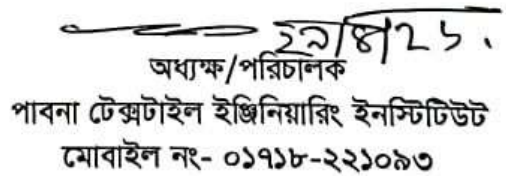 ২৯/৪/২১.
অধ্যক্ষ/পরিচালক
পাবনা টেক্সটাইল ইঞ্জিনিয়ারিং ইনস্টিটিউট
মোবাইল নং- ০১৭১৮-২২১০৯৩